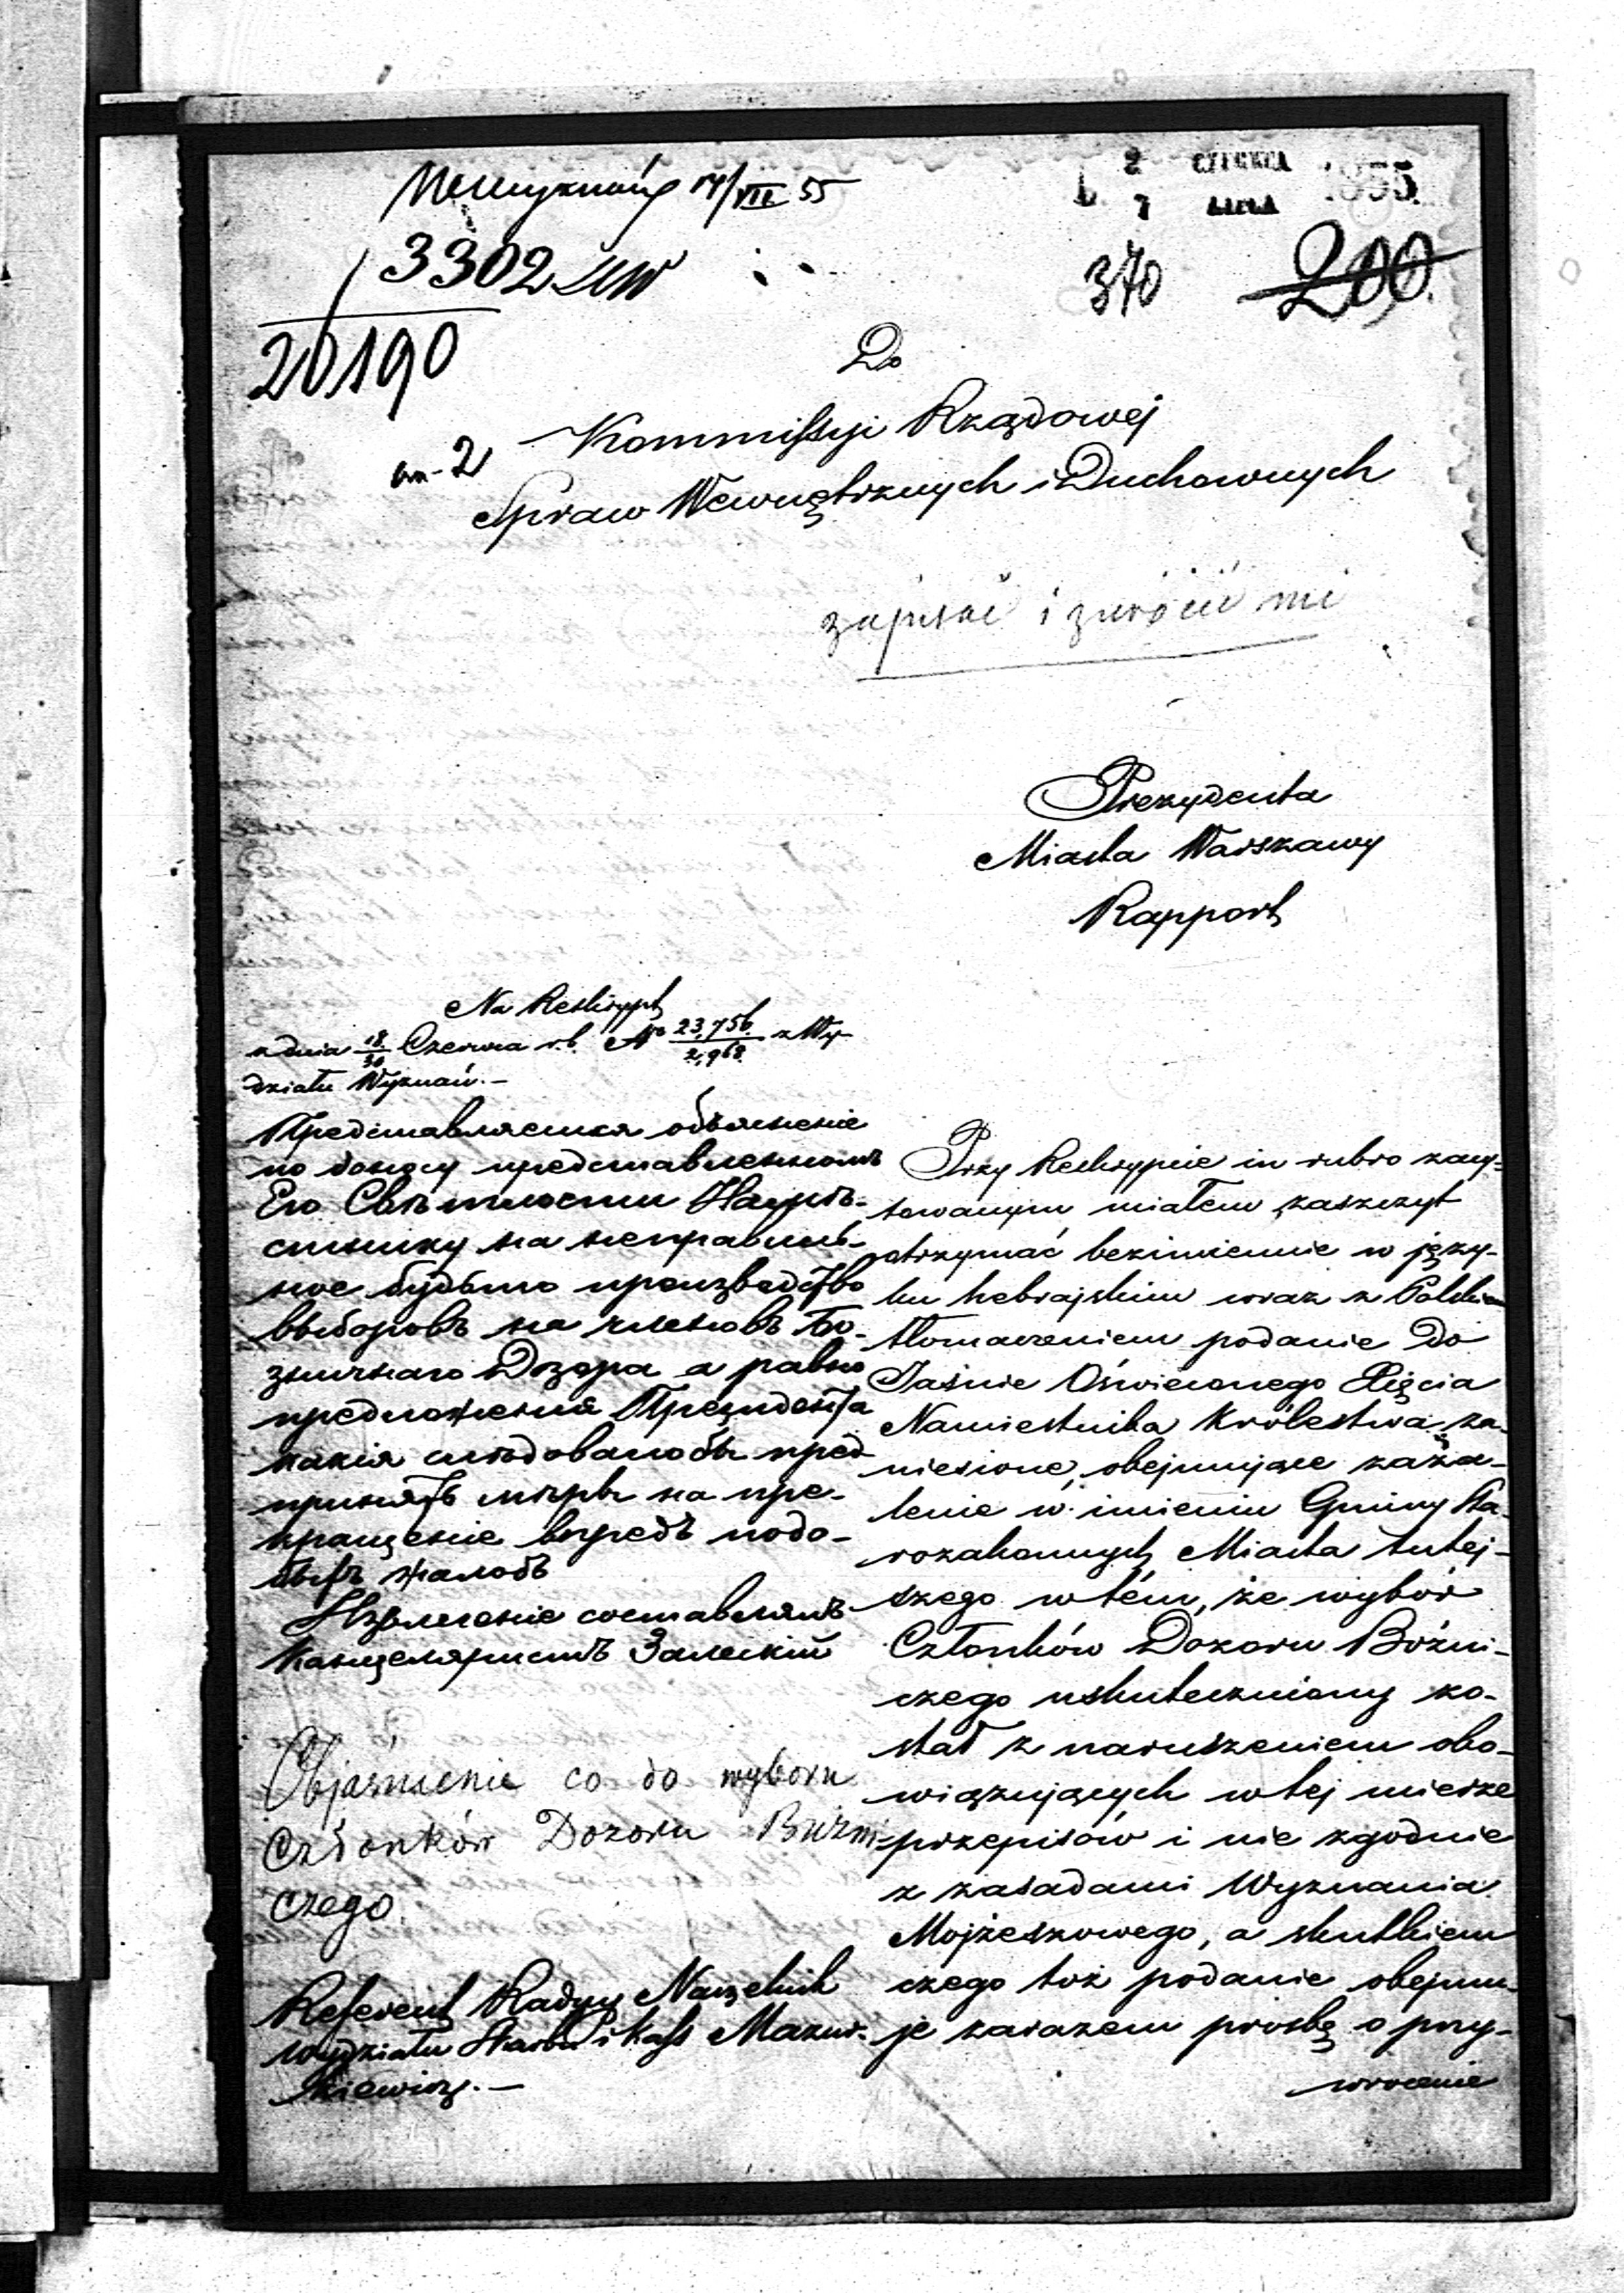 17/VII 55
2 CZERWCA 1855.
7 LIPCA
3302
20190
370 200.
Do
an-2 Kommissyi Rządowej
Spraw Wewnętrznych i Duchownych
zapisać i zwrócić mi
Prezydenta
Miasta Warszawy
Rapport
Na Reskrypt
z dnia 18/30 Czerwca r.b. No 23,756/2,968 z Wy-
działu Wyznań.-
Представляется объясненіе
по доносу представленномъ
Его Свѣтлости Намѣ-
стнику на неправиль-
ное будьто производство
выборовъ на членовъ Бо-
зничнаго Дозора а равно
предложенія Президента
какія слѣдовалобы пред
принять мѣры на пре-
кращеніе впредъ подо-
быхъ жалобъ
составлялъ
Канцеляристъ Залескій
Objaśnienie co do wyboru
Członków Dozoru Bóżni-
czego.
Referent Radny Naczelnik
Wydziału Skarbu i Kass Mazur-
kiewicz.-
Przy Reskrypcie in rubro zacy-
towanym miałem zaszczyt
otrzymać bezimiennie w języ-
ku hebrajskim wraz z Polskiem
tłomaczeniem podanie do
Jaśnie Oświeconego Xięcia
Namiestnika Królestwa za-
niesione, obejmujące zaża-
lenie w imieniu Gminy Sta-
rozakonnych Miasta tutej-
szego w tém, że wybór
Członków Dozoru Bóżni-
czego uskuteczniony zo-
stał z naruszeniem obo-
wiązujących w tej mierze
przepisów i nie zgodnie
z zasadami Wyznania
Mojżeszowego, a skutkiem
czego toż podanie obejmu-
je zarazem prośbę o przy-
wrócenie